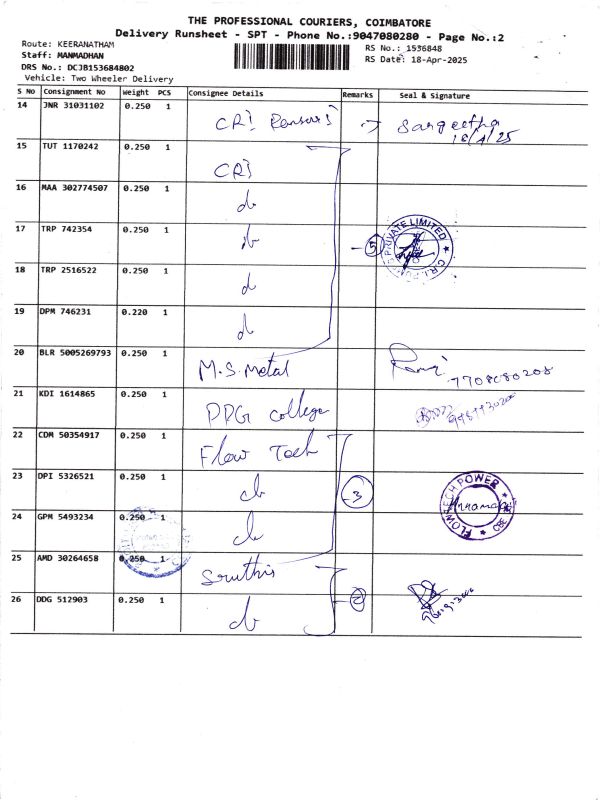 THE PROFESSIONAL COURIERS, COIMBATORE
Delivery Runsheet - SPT - Phone No.:9047080280 - Page No.:2
Route: KEERANATHAM
Staff: MANMADHAN
DRS No.: DCJB1536848O2
Vehicle: Two Wheeler Delivery
RS No.: 1536848
RS Date: 18-Apr-2025
S No Consignment No Weight PCS Consignee Details Remarks Seal & Signature
14 JNR 31031102 0.250 1 CRI Sangeetha
18/4/25
15 TUT 1170242 0.250 1 CRI
16 MAA 302774507 0.250 1 do
17 TRP 742354 0.250 1 do - 5 PRIVATE LIMITED
18 TRP 2516522 0.250 1 do
19 DPM 746231 0.220 1 do
20 BLR 5005269793 0.250 1 M.S. Metal
21 KDI 1614865 0.250 1 PPG college
22 CDM 50354917 0.250 1 Flow Tech
23 DPI 5326521 0.250 1 do - 3 FLOWTECH POWER CBE
24 GPM 5493234 0.250 1 do
25 AMD 30264658 0.250 1 Sruthis
26 DDG 512903 0.250 1 do - 2